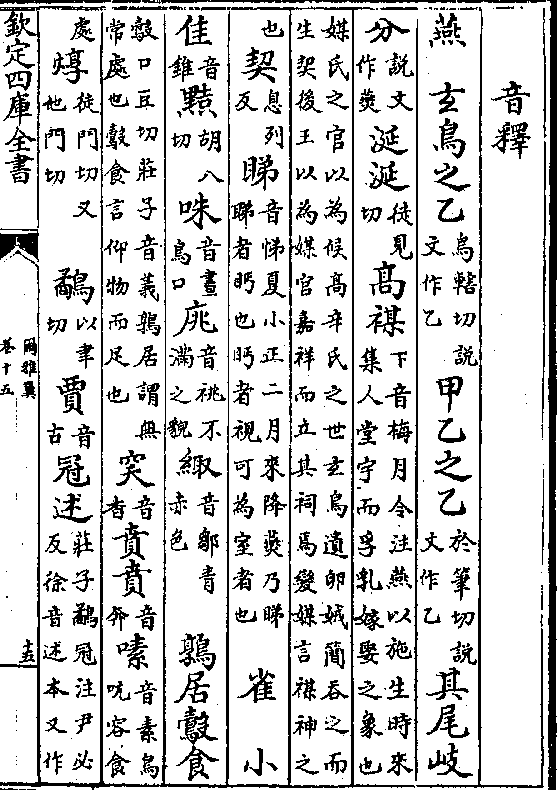 音釋
燕 玄鳥之乙烏轄切說文作乙 甲乙之乙於筆切說文作乙 其尾岐
分說文作㸑 涎涎徒見切 高禖下音梅月令注燕以施生時來集人堂宇而孚乳嫁娶之象也
媒氏之官以為候高辛氏之世玄鳥遺卵娀簡吞之而生契後王以為媒官嘉祥而立其祠焉變媒言禖神之
也 契息列反 睇音悌夏小正二月來降燕乃睇睇者眄也眄者視可為室者也 雀 小
隹音錐 黠胡八切 咮音晝鳥口 庣音祧不滿之貌 緅音鄒青赤色 鶉居鷇食
鷇口豆切莊子音義鶉居謂無常處也鷇食言仰物而足也 突音杳 賁賁音奔 嗉音素鳥吭容食
處 焞徒門切又他門切 鷸以聿切 賈音古 冠述莊子鷸冠注尹必反徐音述本又作
欽定四庫全書
爾雅翼
卷十五
十五